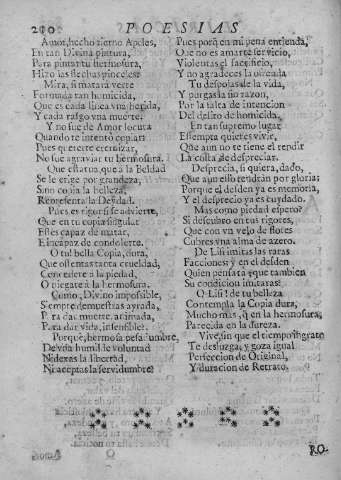 200 POESIAS
Amor, hecho tierno Apeles,
En tan Divina pintura,
Para pintar tu hermosura,
Hizo las flechas pinceles:
Mira, si matarà verte
Formada tan homicida,
Que es cada linea vna herida,
Y cada rasgo vna muerte.
Y no fue de Amor locura
Quando te intentò copiar;
Pues quererte eternizar,
No fue agraviar tu hermosura.
Que estatua, que a la Beldad
Se le erige por grandeza,
Sino copia la belleza,
Representa la Deidad.
Pues es rigor si se advierte,
Que en tu copia singular
Estes capaz de matar,
E incapaz de condolerte.
O tu! bella Copia, dura,
Que ostentas tanta crueldad,
Concedete à la piedad,
O niegate à la hermosura.
Como, Divino impossible,
Siempre te muestras ayrada,
Para dar muerte, animada,
Para dar vida, insensible.
Porquè, hermosa pesadumbre,
De vna humilde voluntad
Ni dexas la libertad,
Ni aceptas la servidumbre?
Pues porq̃ en mi pena entienda,
Que no es amarte servicio,
Violentas el sacrificio,
Y no agradeces la ofrenda
Tu despojas de la vida,
Y purgas la sin razon,
Por la falta de intencion
Del delito de homicida.
En tan supremo lugar
Essempta quieres vivir,
Que aun no te tiene el rendir
La costa de despreciar.
Desprecia, si quiera, dado,
Que aun esso tendràn por gloria;
Porque el desden ya es memoria,
Y el desprecio ya es cuydado.
Mas como piedad espero?
Si descubro en tus rigores,
Que con vn velo de flores
Cubres vna alma de azero.
De Lisi imitas las raras
Facciones; y en el desden
Quien pensara q̃ue tambien
Su condicion imitaras?
O Lisi! de tu belleza
Contempla la Copia dura,
Mucho mas, q̃ en la hermosura,
Parecida en la dureza.
Vive, sin que el tiempo ingrato
Te desluzga; y goza igual
Perfeccion de Original,
Y duracion de Retrato.
RO-